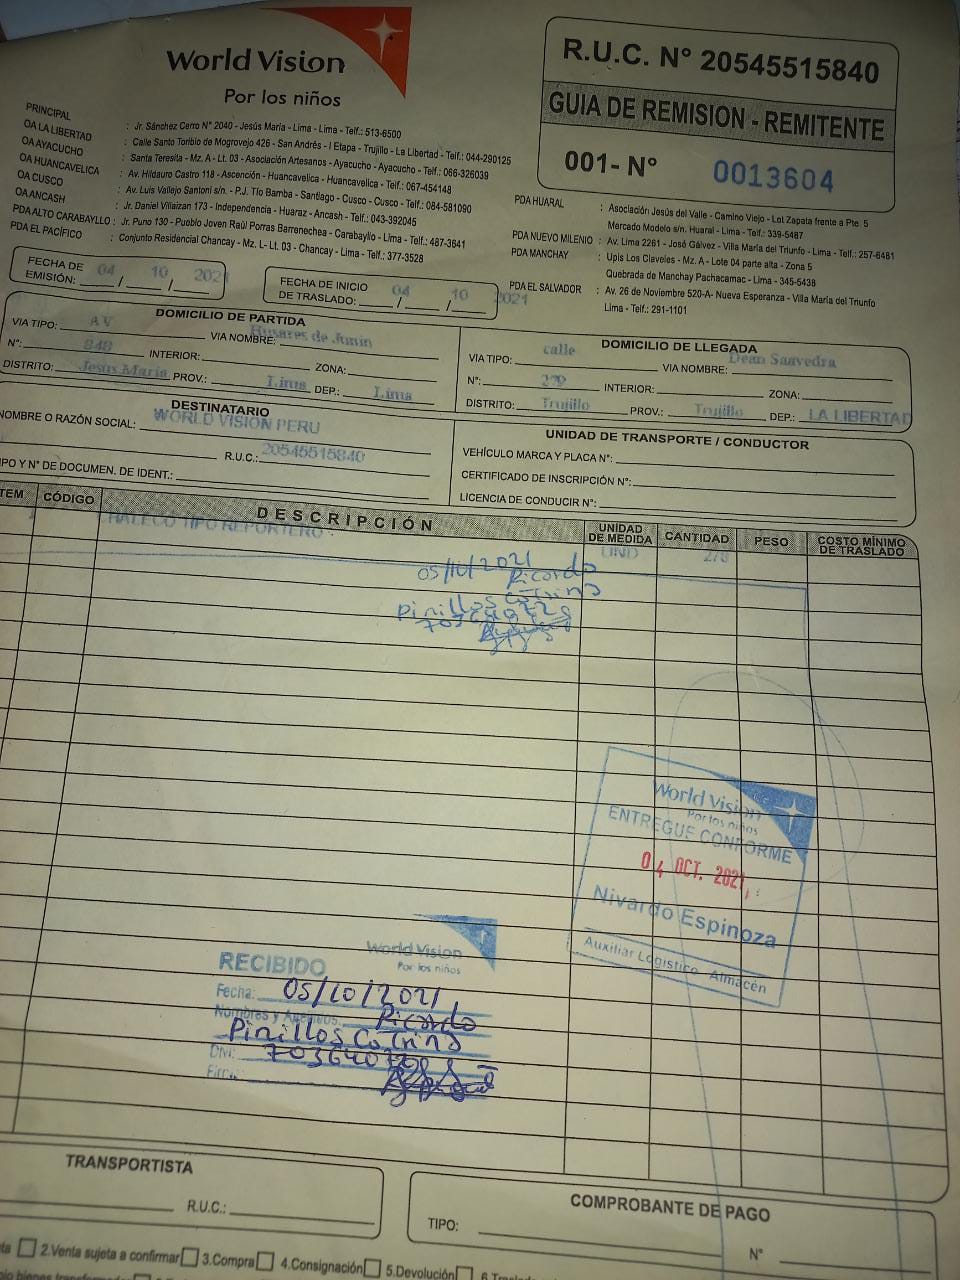 World Vision
Por los niños
R.U.C. N° 20545515840
GUIA DE REMISION - REMITENTE
001- N° 0013604
PRINCIPAL : Jr. Sánchez Cerro N° 2040 - Jesús María - Lima - Lima - Telf.: 513-6500
OA LA LIBERTAD : Calle Santo Toribio de Mogrovejo 426 - San Andrés - I Etapa - Trujillo - La Libertad - Telf.: 044-290125
OA AYACUCHO : Santa Teresita - Mz. A - Lt. 03 - Asociación Artesanos - Ayacucho - Ayacucho - Telf.: 066-326039
OA HUANCAVELICA : Av. Hildauro Castro 118 - Ascención - Huancavelica - Huancavelica - Telf.: 067-454148
OA CUSCO : Av. Luis Vallejo Santoni s/n. - P.J. Tío Bamba - Santiago - Cusco - Cusco - Telf.: 084-581090
OA ANCASH : Jr. Daniel Villaizan 173 - Independencia - Huaraz - Ancash - Telf.: 043-392045
PDA ALTO CARABAYLLO : Jr. Puno 130 - Pueblo Joven Raúl Porras Barrenechea - Carabayllo - Lima - Telf.: 487-3641
PDA EL PACÍFICO : Conjunto Residencial Chancay - Mz. L- Lt. 03 - Chancay - Lima - Telf.: 377-3528
PDA HUARAL : Asociación Jesús del Valle - Camino Viejo - Lot Zapata frente a Pte. 5
Mercado Modelo s/n. Huaral - Lima - Telf.: 339-5487
PDA NUEVO MILENIO : Av. Lima 2261 - José Gálvez - Villa María del Triunfo - Lima - Telf.: 257-6481
PDA MANCHAY : Upis Los Claveles - Mz. A - Lote 04 parte alta - Zona 5
Quebrada de Manchay Pachacamac - Lima - 345-5438
PDA EL SALVADOR : Av. 26 de Noviembre 520-A- Nueva Esperanza - Villa María del Triunfo
Lima - Telf.: 291-1101
FECHA DE EMISIÓN: 04 / 10 / 202
FECHA DE INICIO DE TRASLADO: 04 / 10 / 2021
DOMICILIO DE PARTIDA
VIA TIPO: AV VIA NOMBRE: Husares de Junin
N°: 840 INTERIOR: ZONA:
DISTRITO: Jesus Maria PROV.: Lima DEP.: Lima
DOMICILIO DE LLEGADA
VIA TIPO: calle VIA NOMBRE: Dean Saavedra
N°: 279 INTERIOR: ZONA:
DISTRITO: Trujillo PROV.: Trujillo DEP.: LA LIBERTAD
DESTINATARIO
NOMBRE O RAZÓN SOCIAL: WORLD VISION PERU
R.U.C.: 20545515840
IPO Y N° DE DOCUMEN. DE IDENT.:
UNIDAD DE TRANSPORTE / CONDUCTOR
VEHÍCULO MARCA Y PLACA N°:
CERTIFICADO DE INSCRIPCIÓN N°:
LICENCIA DE CONDUCIR N°:
TEM CÓDIGO DESCRIPCIÓN UNIDAD DE MEDIDA CANTIDAD PESO COSTO MÍNIMO DE TRASLADO
CHALECO TIPO REPORTERO UND
05/10/2021
Ricardo
Pinillos Cotrina
World Vision
Por los niños
ENTREGUE CONFORME
04 OCT. 2021
Nivardo Espinoza
Auxiliar Logístico - Almacén
World Vision
Por los niños
RECIBIDO
Fecha: 05/10/2021
Nombres y Apellidos: Ricardo
Pinillos Cotrina
DNI:
Firma:
TRANSPORTISTA
R.U.C.:
COMPROBANTE DE PAGO
TIPO: N°
2.Venta sujeta a confirmar 3.Compra 4.Consignación 5.Devolución